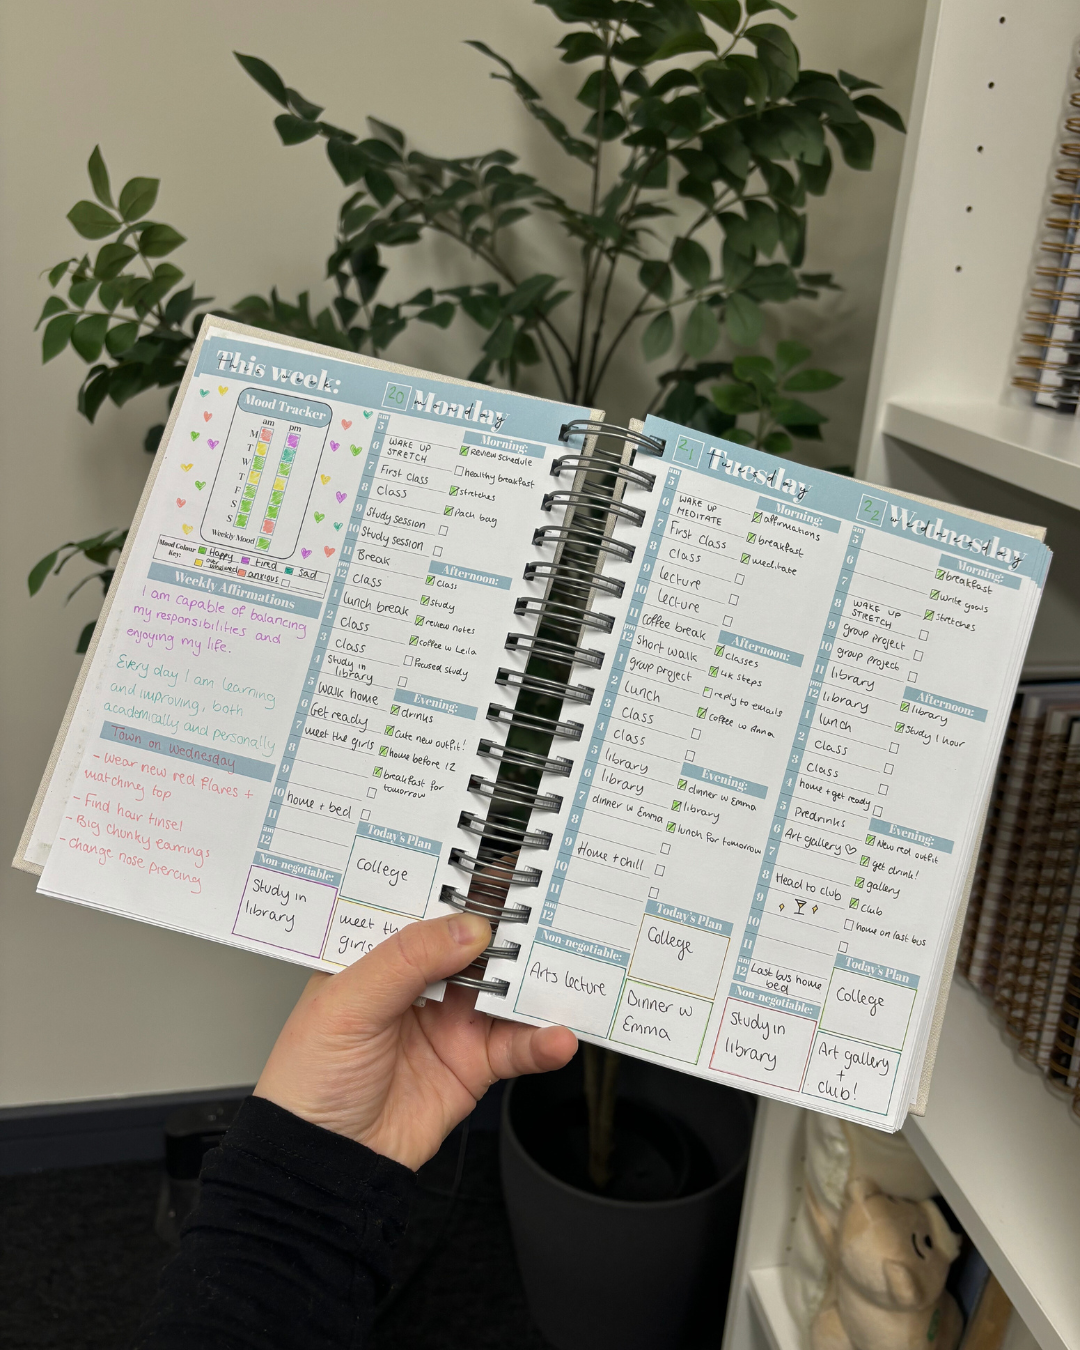 This week:
this week
Mood Tracker
am pm
M
T
W
T
F
S
S
Weekly Mood
Mood Colour Key:
Happy
Tired
Sad
overwhelmed
anxious
Weekly Affirmations
I am capable of balancing
my responsibilities and
enjoying my life.
Every day I am learning
and improving, both
academically and personally
Town on Wednesday
- wear new red flares +
matching top
- Find hair tinsel
- Big chunky earrings
- change nose piercing
20
Monday
monday
am
5
6 WAKE UP
STRETCH
7 First Class
8 Class
9 Study session
10 Study session
11 Break
pm
12 Class
1 lunch break
2 Class
3 Class
4 Study in
library
5 Walk home
6 Get ready
7 meet the girls
8
9
10 home + bed
11
am
12
Morning:
Review schedule
healthy breakfast
stretches
pack bag
Afternoon:
class
study
review notes
coffee w Leila
Focused study
Evening:
drinks
Cute new outfit!
home before 12
breakfast for
tomorrow
Non-negotiable:
Study in
library
Today's Plan
College
meet the
girls
21
Tuesday
tuesday
am
5
6 WAKE UP
MEDITATE
7 First Class
8 Class
9 lecture
10 lecture
11 coffee break
pm
12 Short walk
1 group project
2 lunch
3 Class
4 Class
5 library
6 library
7 dinner w Emma
8
9 Home + chill
10
11
am
12
Morning:
affirmations
breakfast
meditate
Afternoon:
classes
4k steps
reply to emails
coffee w Anna
Evening:
dinner w Emma
library
lunch for tomorrow
Non-negotiable:
Arts lecture
Today's Plan
College
Dinner w
Emma
22
Wednesday
wednesday
am
5
6
7
8 WAKE UP
STRETCH
9 group project
10 group project
11 library
pm
12 library
1 lunch
2 Class
3 Class
4 home + get ready
5 Predrinks
6 Art gallery ♡
7
8 Head to club
9
10
11
am
12 Last bus home
bed
Morning:
breakfast
write goals
stretches
Afternoon:
library
Study 1 hour
Evening:
New red outfit
get drink!
gallery
club
home on last bus
Non-negotiable:
Study in
library
Today's Plan
College
Art gallery
+
club!